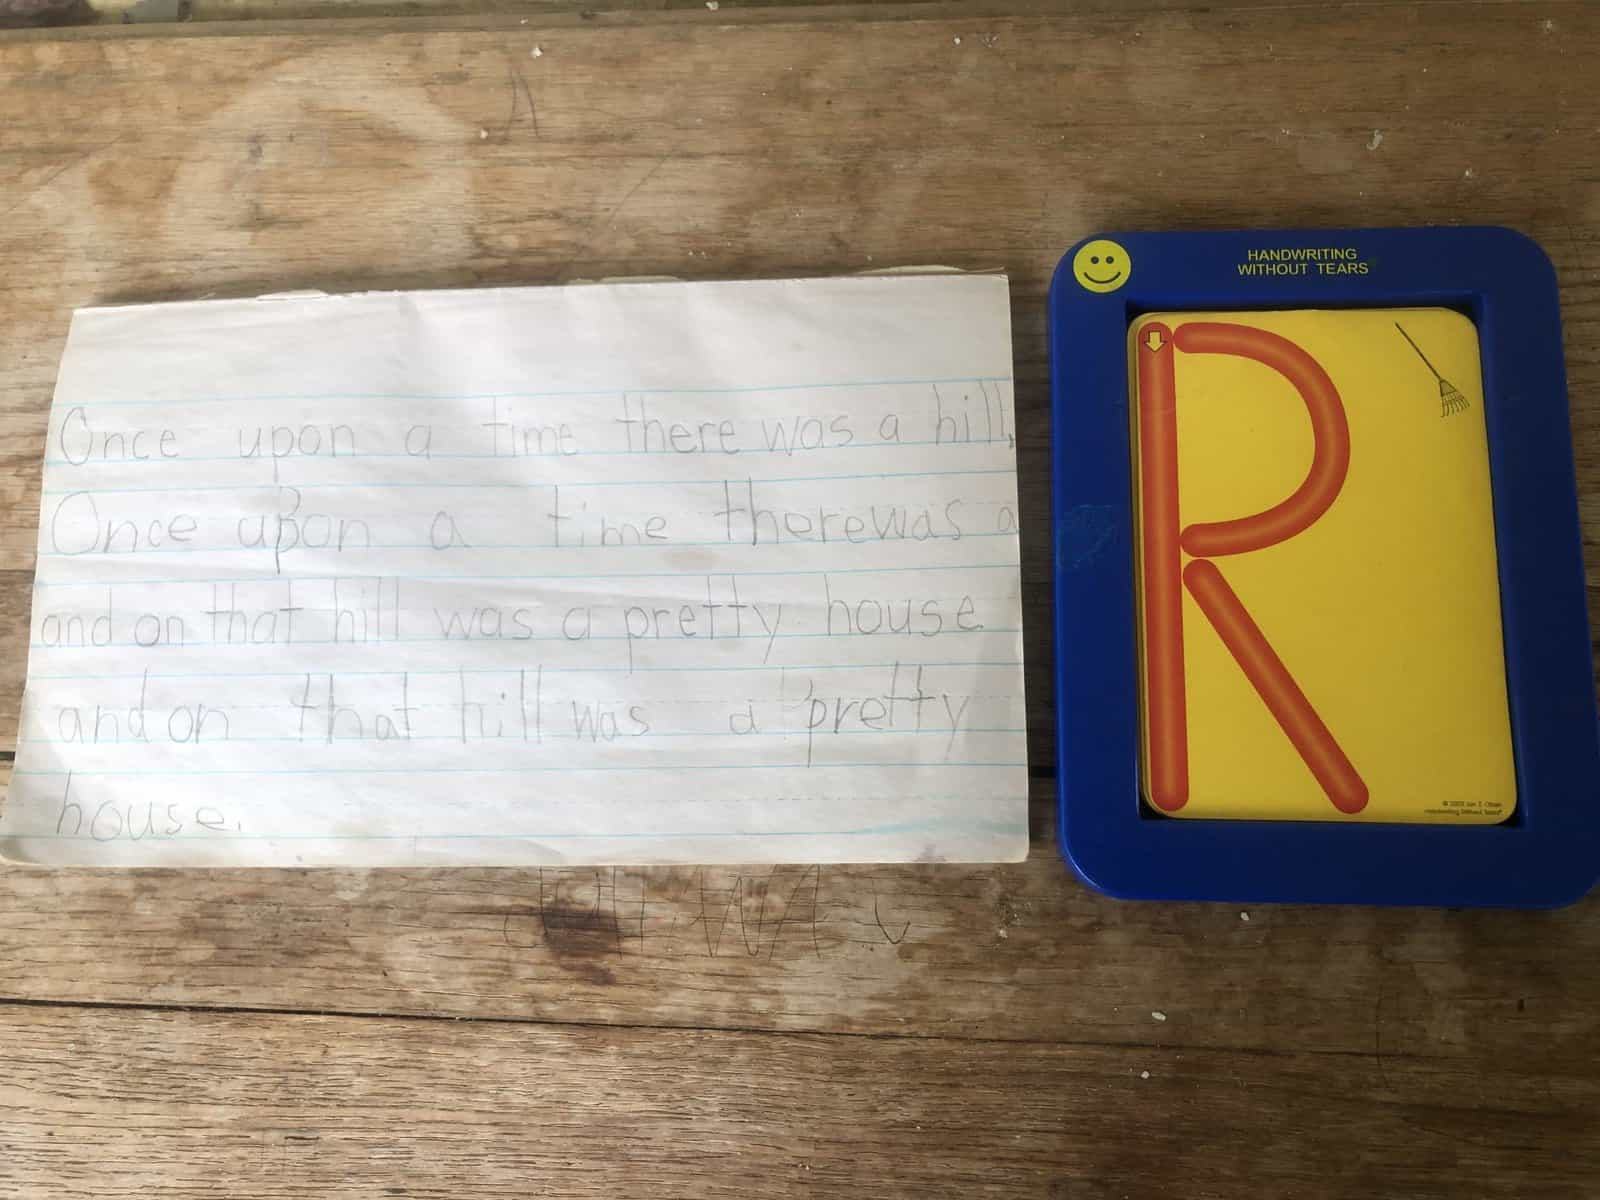 Once upon a time there was a hill,
Once upon a time therewas a
and on that hill was a pretty house
and on that hill was a pretty
house.
HANDWRITING
WITHOUT TEARS
R
© 2003 Jan Z. Olsen
Handwriting Without Tears®